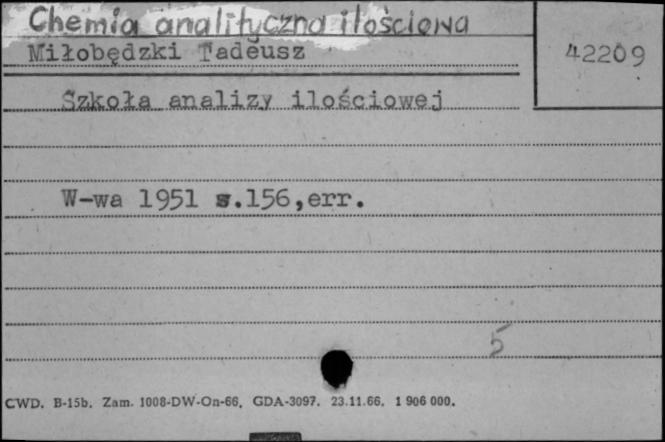 Chemia analityczna ilościowa
Miłobędzki Tadeusz
42209
Szkoła analizy ilościowej
W-wa 1951 s.156,err.
5
CWD. B-15b. Zam. 1008-DW-On-66. GDA-3097. 23.11.66. 1 906 000.